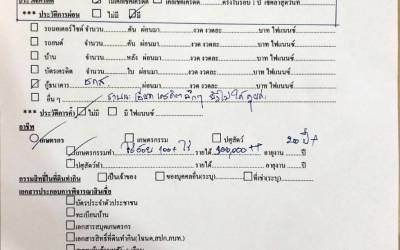 *** ประวัติการผ่อน ไม่มี มี
รถมอเตอร์ไซค์ จำนวน คัน ผ่อนมา งวด งวดละ บาท ไฟแนนซ์
รถยนต์ จำนวน คัน ผ่อนมา งวด งวดละ บาท ไฟแนนซ์
บ้าน จำนวน หลัง ผ่อนมา งวด งวดละ บาท ไฟแนนซ์
บัตรเครดิต จำนวน ใบ ผ่อนมา งวด งวดละ บาท ไฟแนนซ์
กู้ธนาคาร ธกส.
อื่น ๆ
*** ประวัติการค้ำ ไม่มี มี ไฟแนนซ์
อาชีพ
เกษตรกร เกษตรกรรม ปศุสัตว์
เกษตรกรรมทำ ไร่อ้อย 100+ ไร่ รายได้ 300,000 ++ อายุงาน 20 ปี+
ปศุสัตว์ทำ รายได้ อายุงาน ปี
กรรมสิทธิ์ในที่ดินทำกิน เป็นเจ้าของ ของบุคคลอื่น(ระบุ) ที่เช่า(ระบุ)
เอกสารประกอบการพิจารณาสินเชื่อ
บัตรประจำตัวประชาชน
ทะเบียนบ้าน
เอกสารสมุดเกษตรกร
เอกสารสิทธิ์ที่ดินทำกิน(โฉนด,สปก,ภบท.)